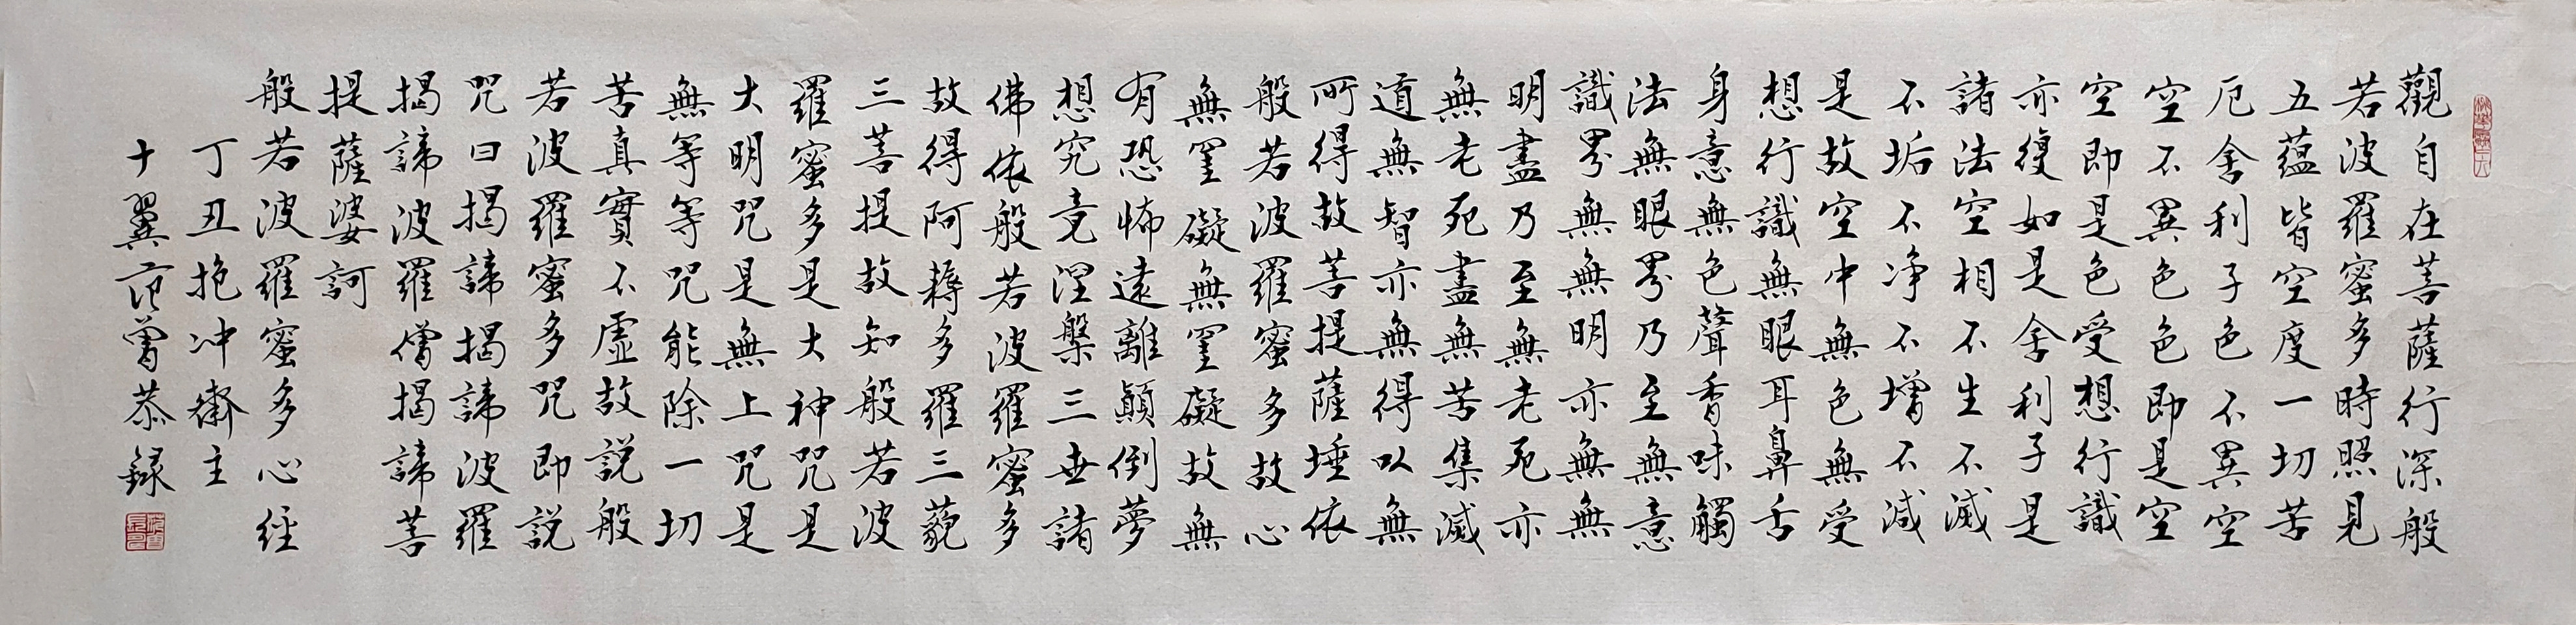 觀自在菩薩行深般
若波羅蜜多時照見
五蘊皆空度一切苦
厄舍利子色不異空
空不異色色即是空
空即是色受想行識
亦復如是舍利子是
諸法空相不生不滅
不垢不净不增不減
是故空中無色無受
想行識無眼耳鼻舌
身意無色聲香味觸
法無眼界乃至無意
識界無無明亦無無
明盡乃至無老死亦
無老死盡無苦集滅
道無智亦無得以無
所得故菩提薩埵依
般若波羅蜜多故心
無罣礙無罣礙故無
有恐怖遠離顛倒夢
想究竟涅槃三世諸
佛依般若波羅蜜多
故得阿耨多羅三藐
三菩提故知般若波
羅蜜多是大神咒是
大明咒是無上咒是
無等等咒能除一切
苦真實不虛故說般
若波羅蜜多咒即說
咒曰揭諦揭諦波羅
揭諦波羅僧揭諦菩
提薩婆訶
般若波羅蜜多心經
丁丑抱冲齋主
十翼范曾恭録